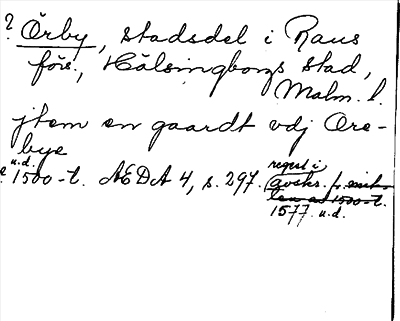 ? Örby, stadsdel i Raus
förs., Hälsingborgs stad,
Malm. l.
jtem en gaardt vdj Ore-
bye
u.d.
1500-t. ÆDA 4, s. 297. regest i
avskr. fr. mitt-
len av 1500-t.
1577. u.d.